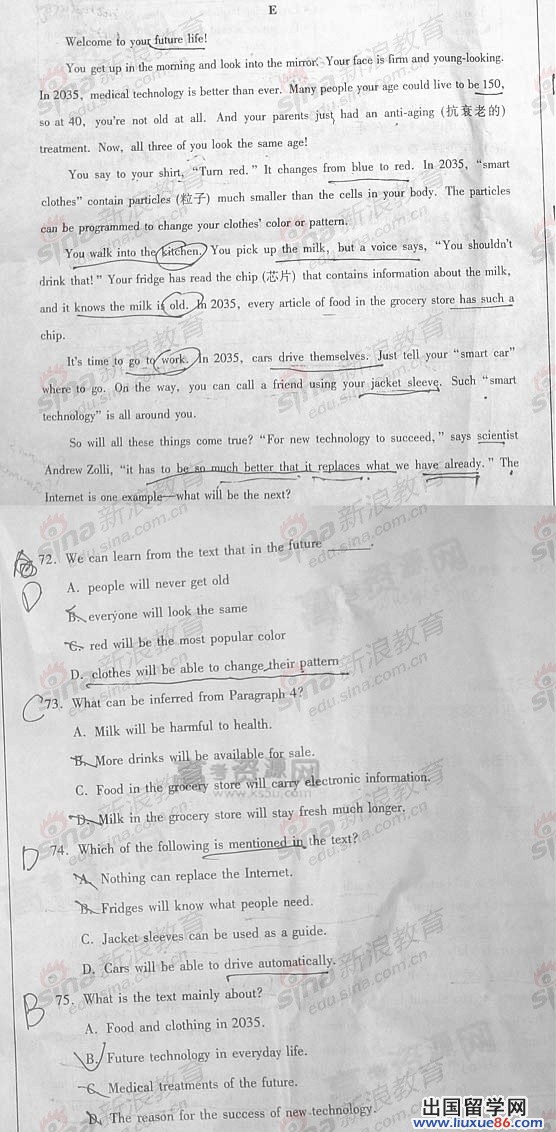 E
Welcome to your future life!
You get up in the morning and look into the mirror. Your face is firm and young-looking.
In 2035, medical technology is better than ever. Many people your age could live to be 150,
so at 40, you're not old at all. And your parents just had an anti-aging (抗衰老的)
treatment. Now, all three of you look the same age!
You say to your shirt, "Turn red." It changes from blue to red. In 2035, "smart
clothes" contain particles (粒子) much smaller than the cells in your body. The particles
can be programmed to change your clothes' color or pattern.
You walk into the kitchen. You pick up the milk, but a voice says, "You shouldn't
drink that!" Your fridge has read the chip (芯片) that contains information about the milk,
and it knows the milk is old. In 2035, every article of food in the grocery store has such a
chip.
It's time to go to work. In 2035, cars drive themselves. Just tell your "smart car"
where to go. On the way, you can call a friend using your jacket sleeve. Such "smart
technology" is all around you.
So will all these things come true? "For new technology to succeed," says scientist
Andrew Zolli, "it has to be so much better that it replaces what we have already." The
Internet is one example—what will be the next?
72. We can learn from the text that in the future ______.
D
A. people will never get old
B. everyone will look the same
C. red will be the most popular color
D. clothes will be able to change their pattern
C 73. What can be inferred from Paragraph 4?
A. Milk will be harmful to health.
B. More drinks will be available for sale.
C. Food in the grocery store will carry electronic information.
D. Milk in the grocery store will stay fresh much longer.
D 74. Which of the following is mentioned in the text?
A. Nothing can replace the Internet.
B. Fridges will know what people need.
C. Jacket sleeves can be used as a guide.
D. Cars will be able to drive automatically.
B 75. What is the text mainly about?
A. Food and clothing in 2035.
B. Future technology in everyday life.
C. Medical treatments of the future.
D. The reason for the success of new technology.
sina 新浪教育
edu.sina.com.cn
高考资源网
www.ks5u.com
出国留学网
www.liuxue86.com